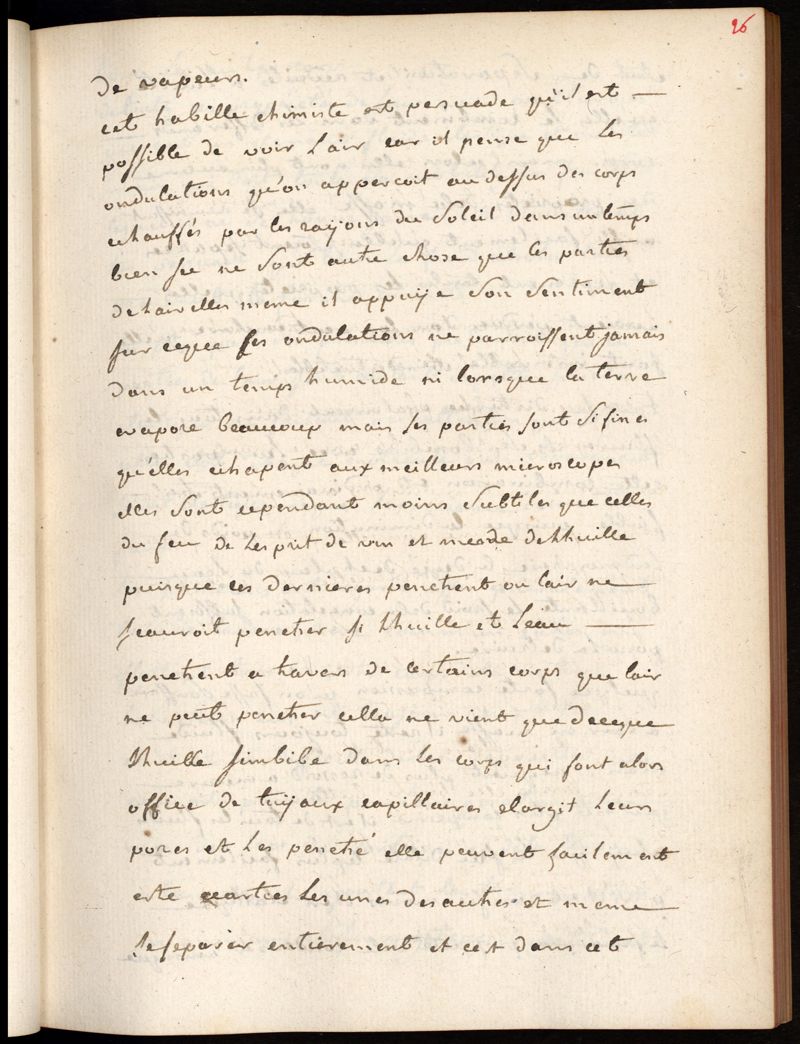 26
de vapeurs.
cet habille chimiste est persuade qu'il est —
possible de voir l'air car il pense que les
ondulations qu'on appercoit au dessus des corps
echauffés par les raijons du Soleil dans un temps
bien sec ne sont autre chose que les parties
de hair elles meme il appuije son sentiment
sur ceque ses ondulations ne parroissent jamais
dans un temps humide ni lorsque la terre
evapore beaucoup mais ses parties sont si fines
qu'elles echapent aux meilleurs microscopes
elles sont cependant moins subtiles que celles
du feu de lesprit de vin et meme de lhuille
puisque ces dernieres penetrent ou lair ne
scauroit penetrer si lhuille et leau —
penetrent a travers de certains corps que lair
ne peut penetrer cella ne vient que de ceque
lhuille simbibe dans les corps qui font alors
office de tuijaux capillaires elargit leurs
pores et les penetré elle peuvent facilement
etre ecartées les unes des autres et meme
se separer entierement et cest dans cet